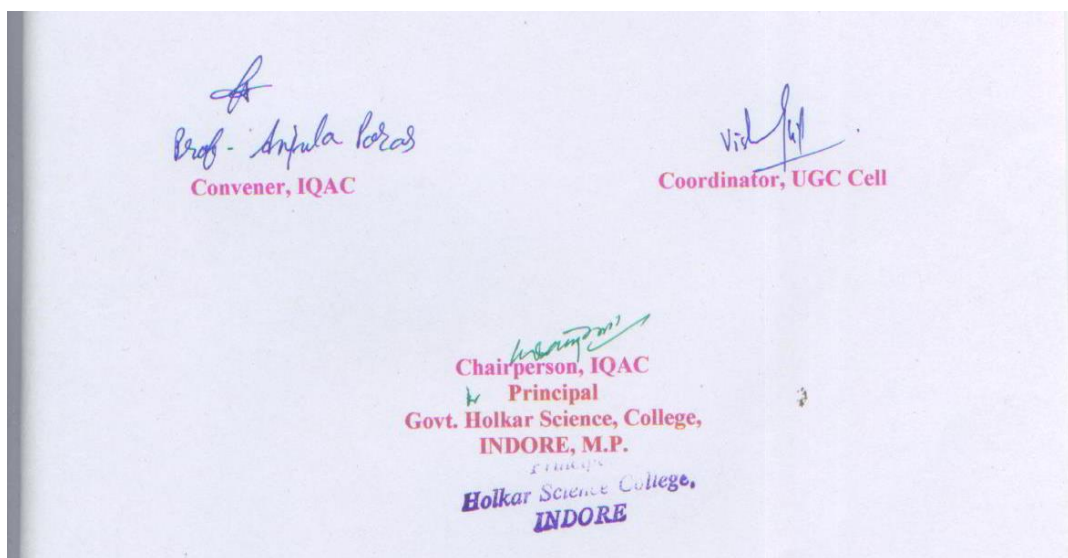 Prof- Anjula
Convener, IQAC
Coordinator, UGC Cell
Chairperson, IQAC
Principal
Govt. Holkar Science, College,
INDORE, M.P.
Principal
Holkar Science College,
INDORE